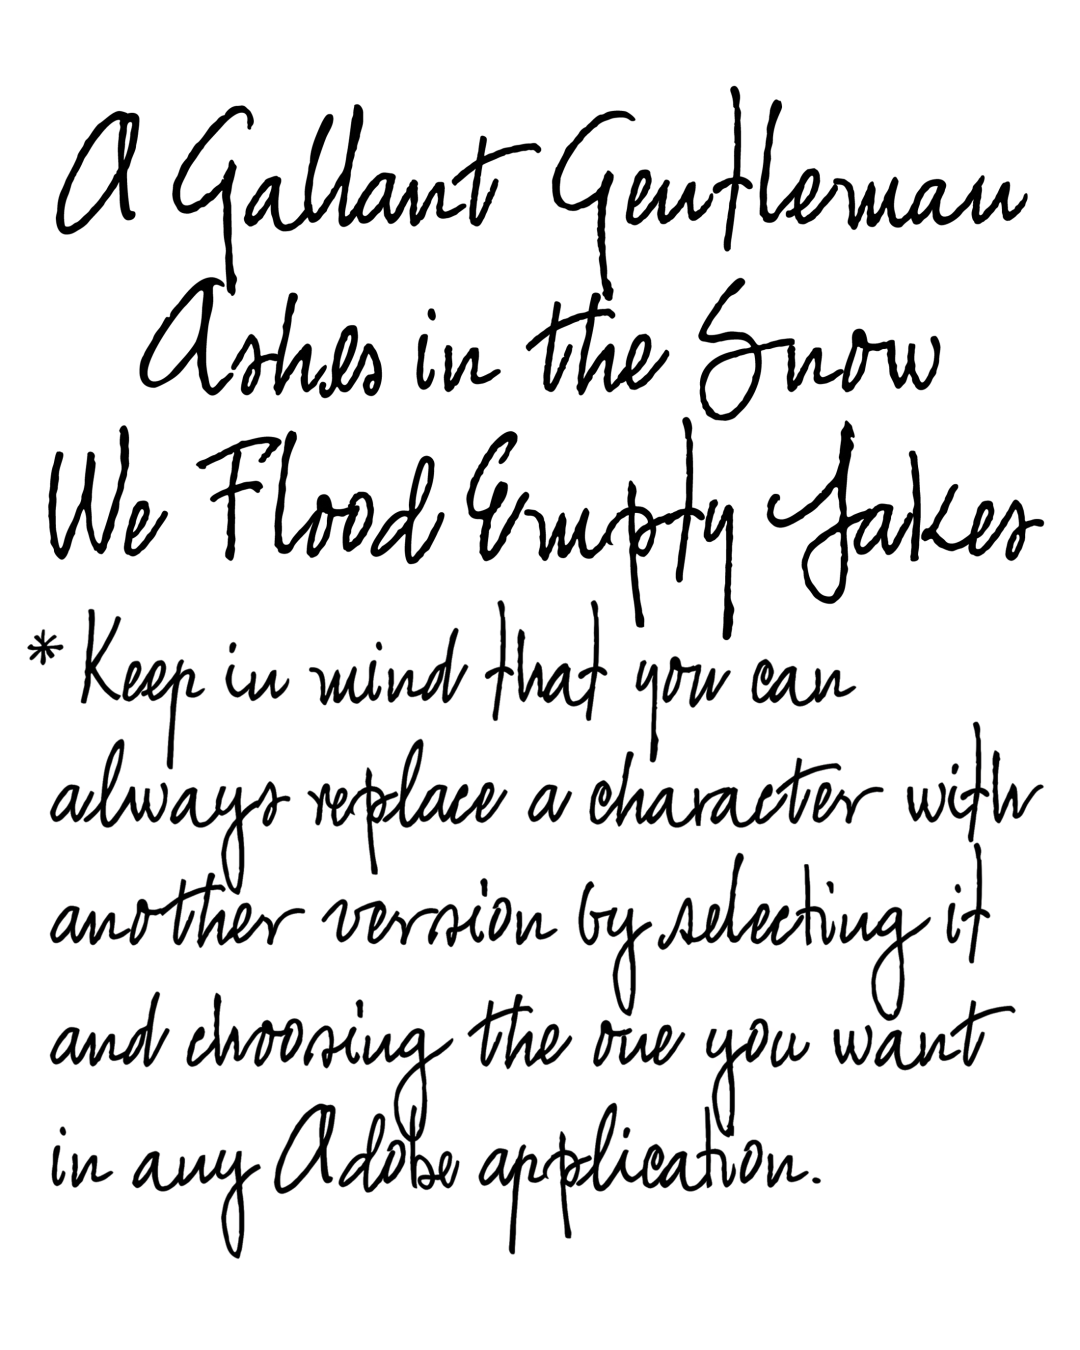 A Gallant Gentleman
Ashes in the Snow
We Flood Empty Lakes
* Keep in mind that you can
always replace a character with
another version by selecting it
and choosing the one you want
in any Adobe application.